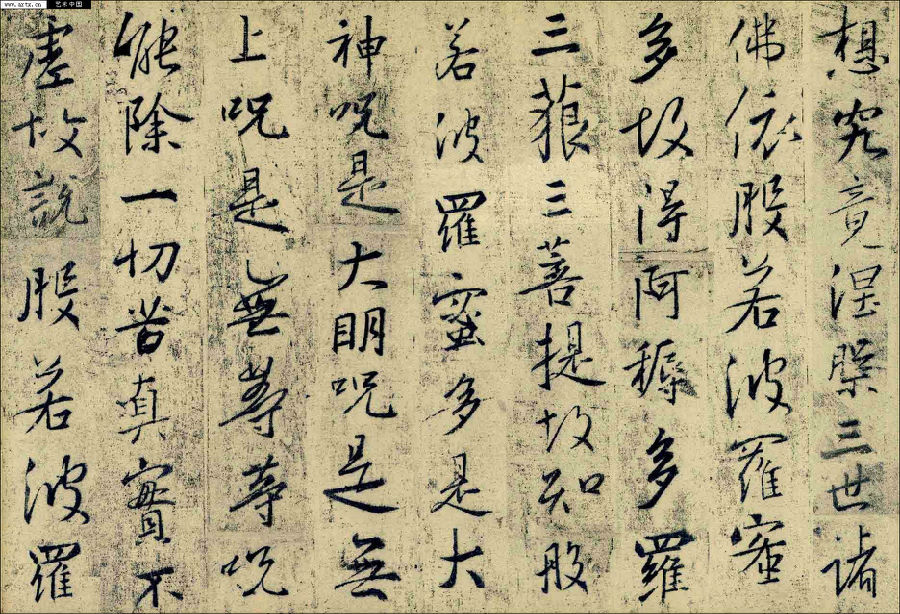 www.artx.cn 艺术中国
想究竟涅槃三世諸
佛依般若波羅蜜
多故得阿耨多羅
三藐三菩提故知般
若波羅蜜多是大
神呪是大明呪是無
上呪是無等等呪
能除一切苦真實不
虛故說般若波羅